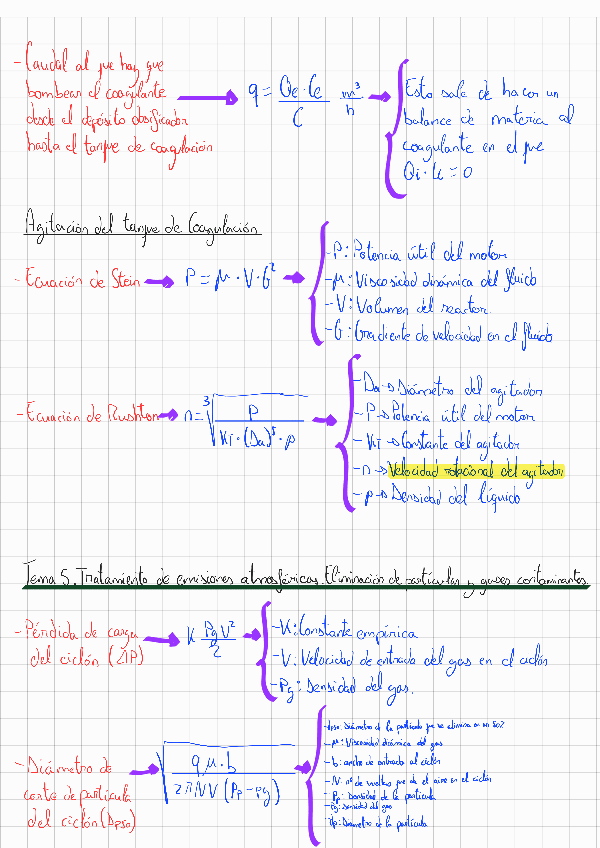 - Caudal al que hay que
bombear el coagulante
desde el depósito dosificador
hasta el tanque de coagulación
q = Qe · Ce / C m³/h
Esto sale de hacer un
balance de materia al
coagulante en el que
Qi · Ci = 0
Agitación del tanque de Coagulación
- Ecuación de Stein
P = μ · V · G²
- P: Potencia útil del motor
- μ: Viscosidad dinámica del fluido
- V: Volumen del reactor
- G: Gradiente de velocidad en el fluido
- Ecuación de Rushton
n = ∛(P / (KT · (Da)⁵ · ρ))
- Da → Diámetro del agitador
- P → Potencia útil del motor
- KT → Constante del agitador
- n → Velocidad rotacional del agitador
- ρ → Densidad del líquido
Tema 5. Tratamiento de emisiones atmosféricas. Eliminación de partículas y gases contaminantes
- Pérdida de carga
del ciclón (ΔP)
K ρg V² / 2
- K: Constante empírica
- V: Velocidad de entrada del gas en el ciclón
- ρg: Densidad del gas.
- Diámetro de
corte de partícula
del ciclón (Dp50)
√(9 μ · b / (2 π N V (ρp - ρg)))
- Dp50: Diámetro de la partícula que se elimina en un 50%
- μ: Viscosidad dinámica del gas
- b: ancho de entrada al ciclón
- N: nº de vueltas que da el aire en el ciclón
- ρp: Densidad de la partícula
- ρg: Densidad del gas
- dp: Diámetro de la partícula